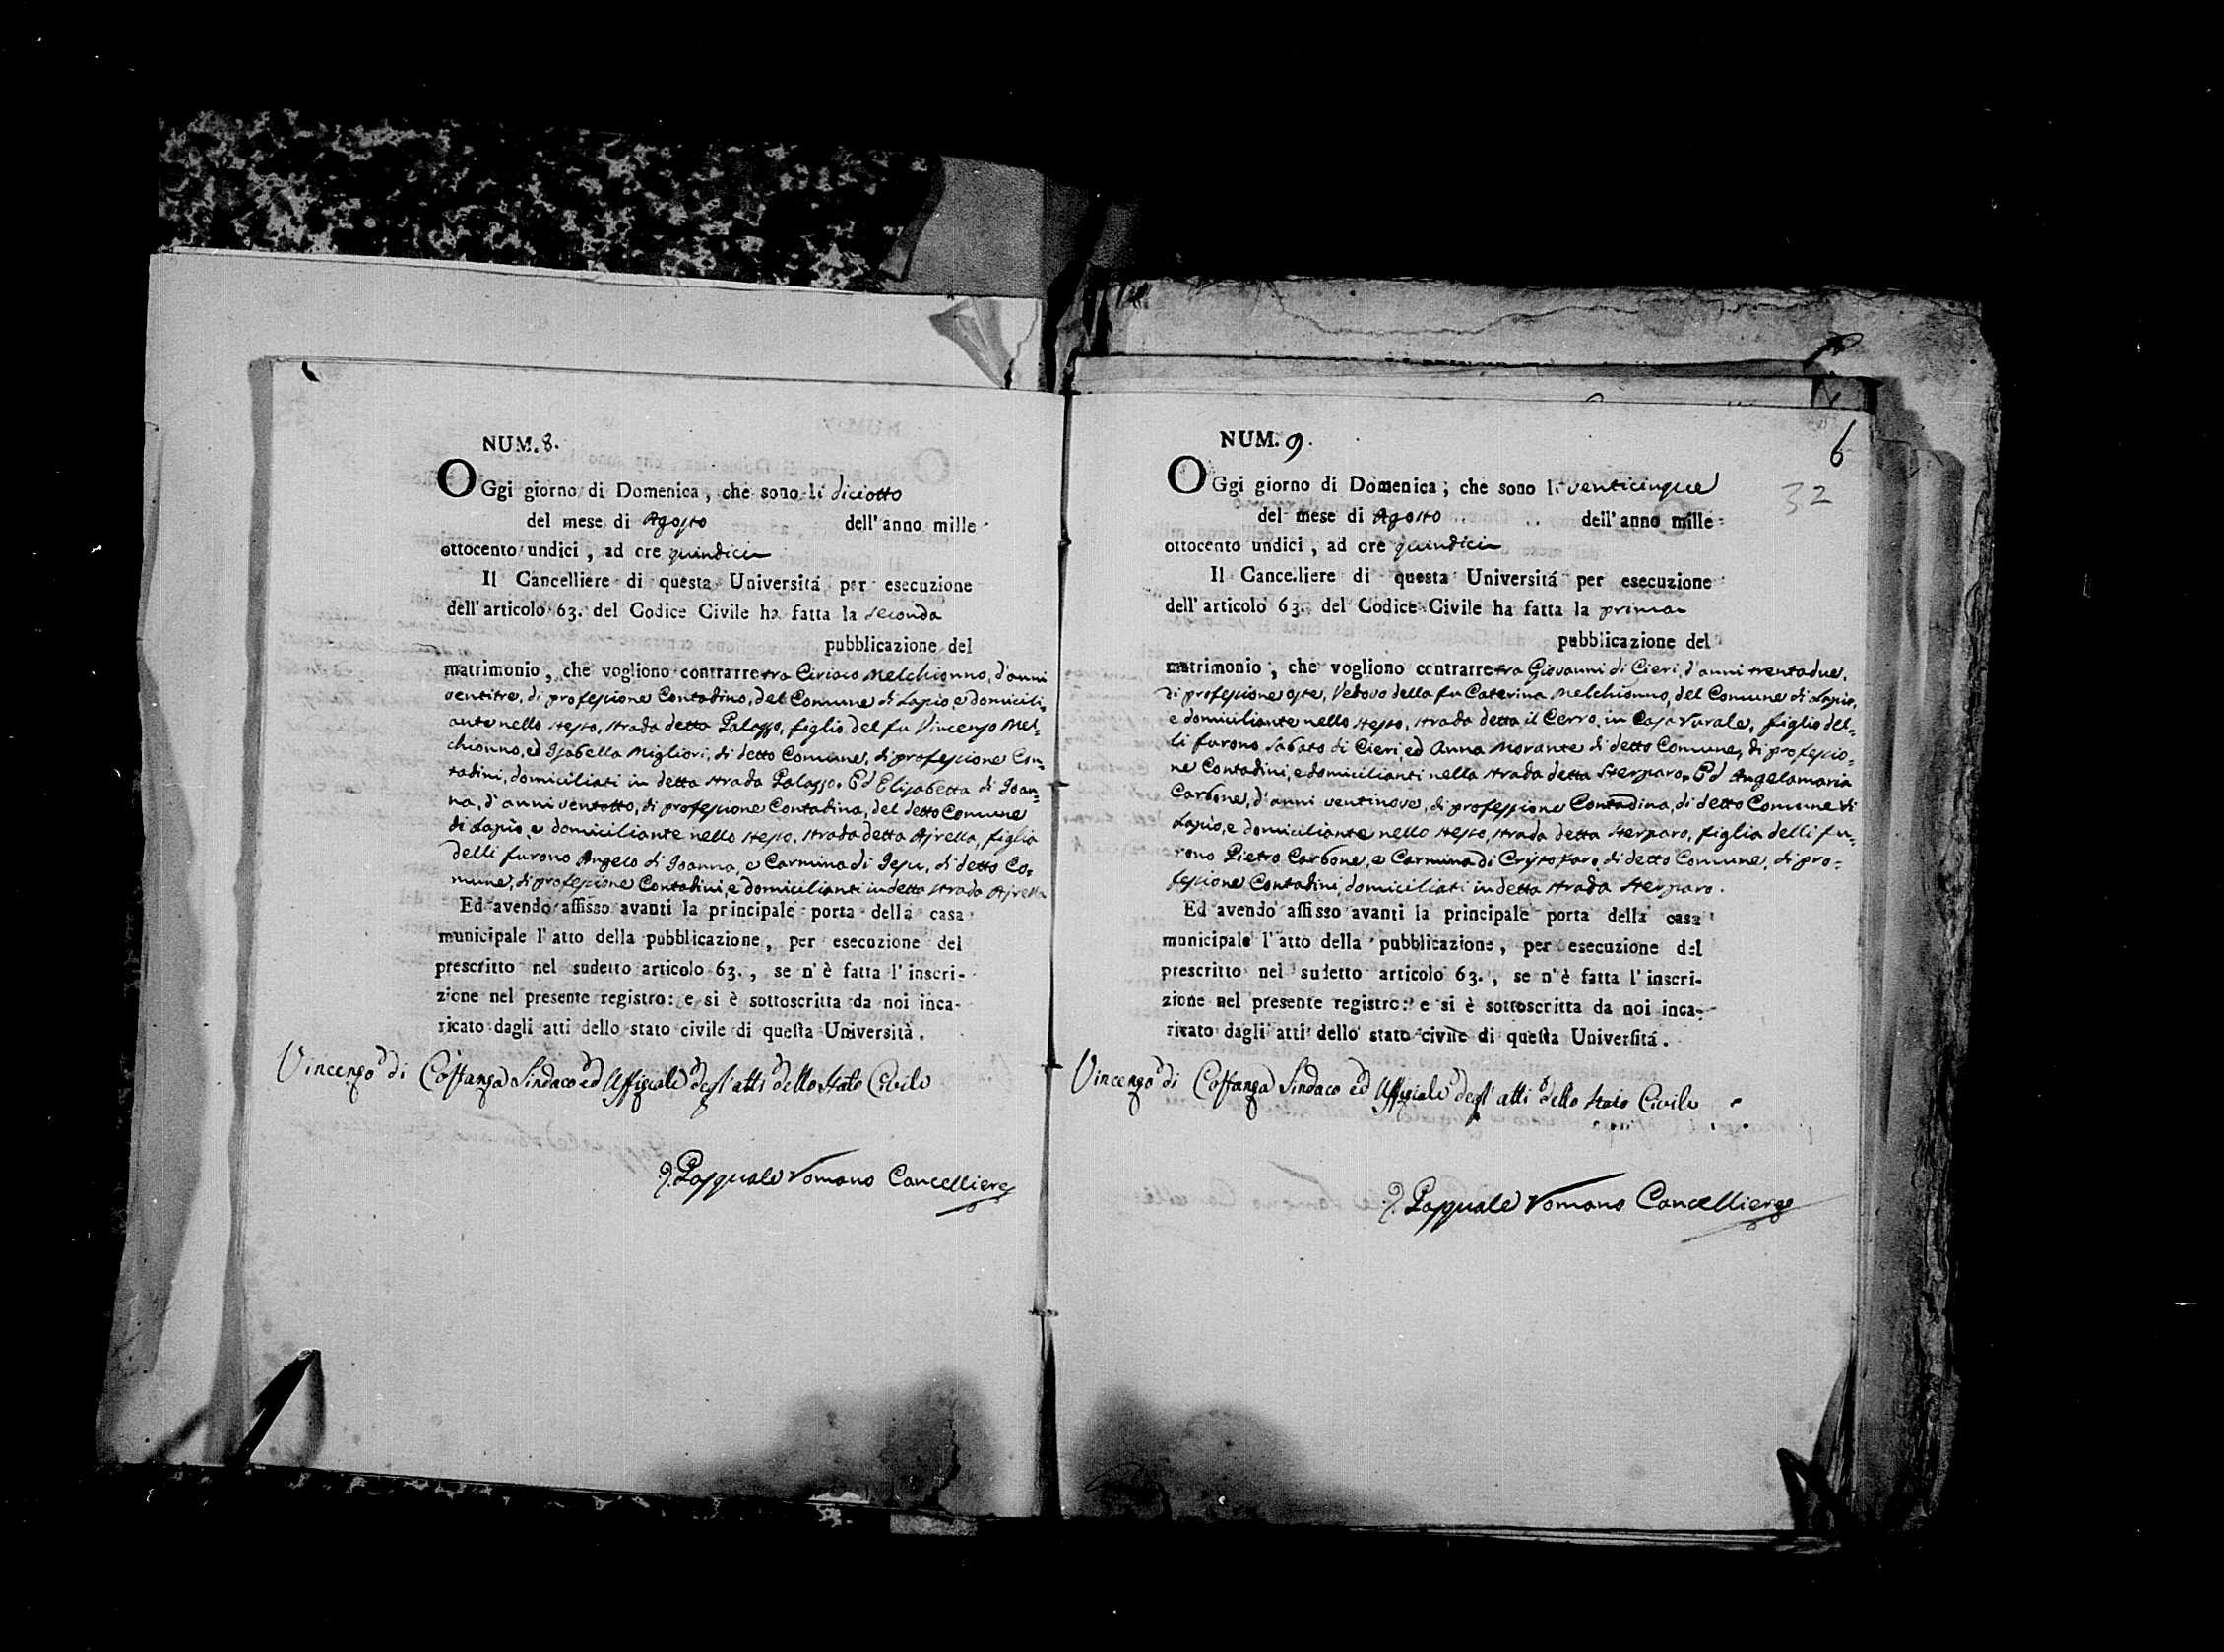 NUM. 8.
OGgi giorno di Domenica, che sono li diciotto
del mese di Agosto dell'anno mille-
ottocento undici, ad ore quindici
Il Cancelliere di questa Universitá per esecuzione
dell'articolo 63. del Codice Civile ha fatta la seconda
pubblicazione del
matrimonio, che vogliono contrarre tra Ciriaco Melchionno, d'anni
ventitre, di professione Contadino, del Comune di Lapio e domicili-
ante nello stesso, strada detta Palazzo, figlio del fu Vincenzo Mel-
chionno, ed Isabella Migliori, di detto Comune, di professione Con-
tadini, domiciliati in detta strada Palazzo. Ed Elisabetta di Joan-
na, d'anni ventotto, di professione Contadina, del detto Comune
di Lapio, e domiciliante nello stesso, strada detta Ajrella, figlia
delli furono Angelo di Joanna, e Carmina di Jesu, di detto Co-
mune, di professione Contadini, e domicilianti in detta strada Ajrella
Ed avendo affisso avanti la principale porta della casa
municipale l'atto della pubblicazione, per esecuzione del
prescritto nel sudetto articolo 63., se n'è fatta l'inscri-
zione nel presente registro: e si è sottoscritta da noi inca-
ricato dagli atti dello stato civile di questa Università.
Vincenzo di Costanza Sindaco ed Uffiziale degl'atti dello Stato Civile
D. Pasquale Romano Cancelliere
6
32
NUM. 9.
OGgi giorno di Domenica; che sono li venticinque
del mese di Agosto dell'anno mille-
ottocento undici, ad ore quindici
Il Cancelliere di questa Universitá per esecuzione
dell'articolo 63. del Codice Civile ha fatta la prima
pubblicazione del
matrimonio, che vogliono contrarre tra Giovanni di Cieri, d'anni trentadue,
di professione oste, Vedovo della fu Caterina Melchionno, del Comune di Lapio,
e domiciliante nello stesso, strada detta il Cerro, in Casa rurale, figlio del-
li furono Sabato di Cieri, ed Anna Morante di detto Comune, di professio-
ne Contadini, e domicilianti nella strada detta Sterparo. Ed Angelamaria
Carbone, d'anni ventinove, di professione Contadina, di detto Comune di
Lapio, e domiciliante nello stesso, strada detta Sterparo, figlia delli fu-
rono Pietro Carbone, e Carmina di Cristofaro, di detto Comune, di pro-
fessione Contadini, domiciliati in detta strada Sterparo.
Ed avendo affisso avanti la principale porta della casa
municipale l'atto della pubblicazione, per esecuzione del
prescritto nel sudetto articolo 63., se n'è fatta l'inscri-
zione nel presente registro: e si è sottoscritta da noi inca-
ricato dagli atti dello stato civile di questa Universitá.
Vincenzo di Costanza Sindaco ed Uffiziale degl'atti dello Stato Civile
D. Pasquale Romano Cancelliere